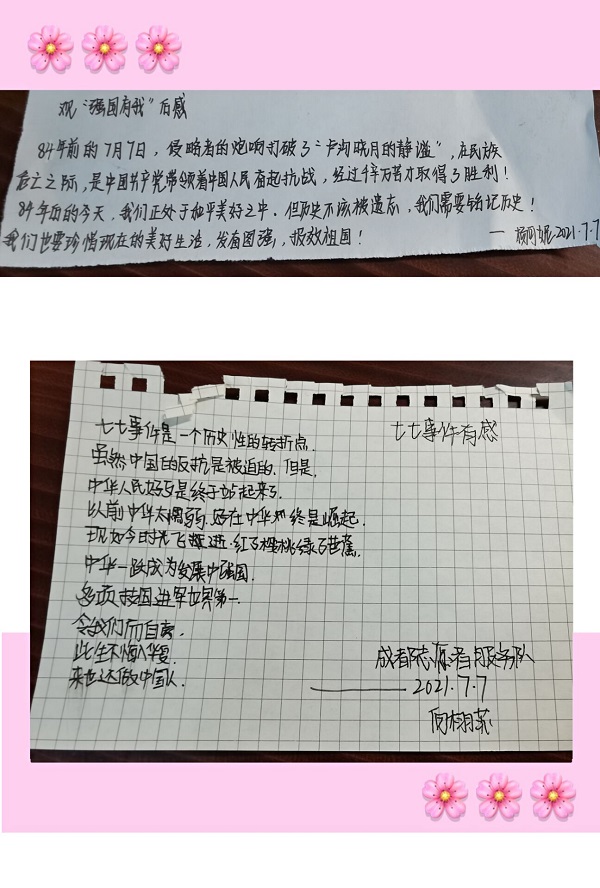 观“强国有我”后感
84年前的7月7日，侵略者的炮响打破了“卢沟晓月的静谧”，在民族
危亡之际，是中国共产党带领着中国人民奋起抗战，经过千辛万苦才取得了胜利！
84年后的今天，我们正处于和平美好之中。但历史不该被遗忘，我们需要铭记历史！
我们也要珍惜现在的美好生活，发奋图强，报效祖国！
— 杨 2021.7.7
七七事件有感
七七事件是一个历史性的转折点.
虽然中国的反抗是被迫的.但是.
中华人民好歹是终于站起来了.
以前中华太懦弱.好在中华 终是崛起.
现如今时光飞 进.红了樱桃绿了芭蕉.
中华一跃成为发展中强国.
多项 进军世界第一.
令我们而自豪.
此生不悔入华夏.
来世还做中国人.
成都志愿者服务队
2021.7.7